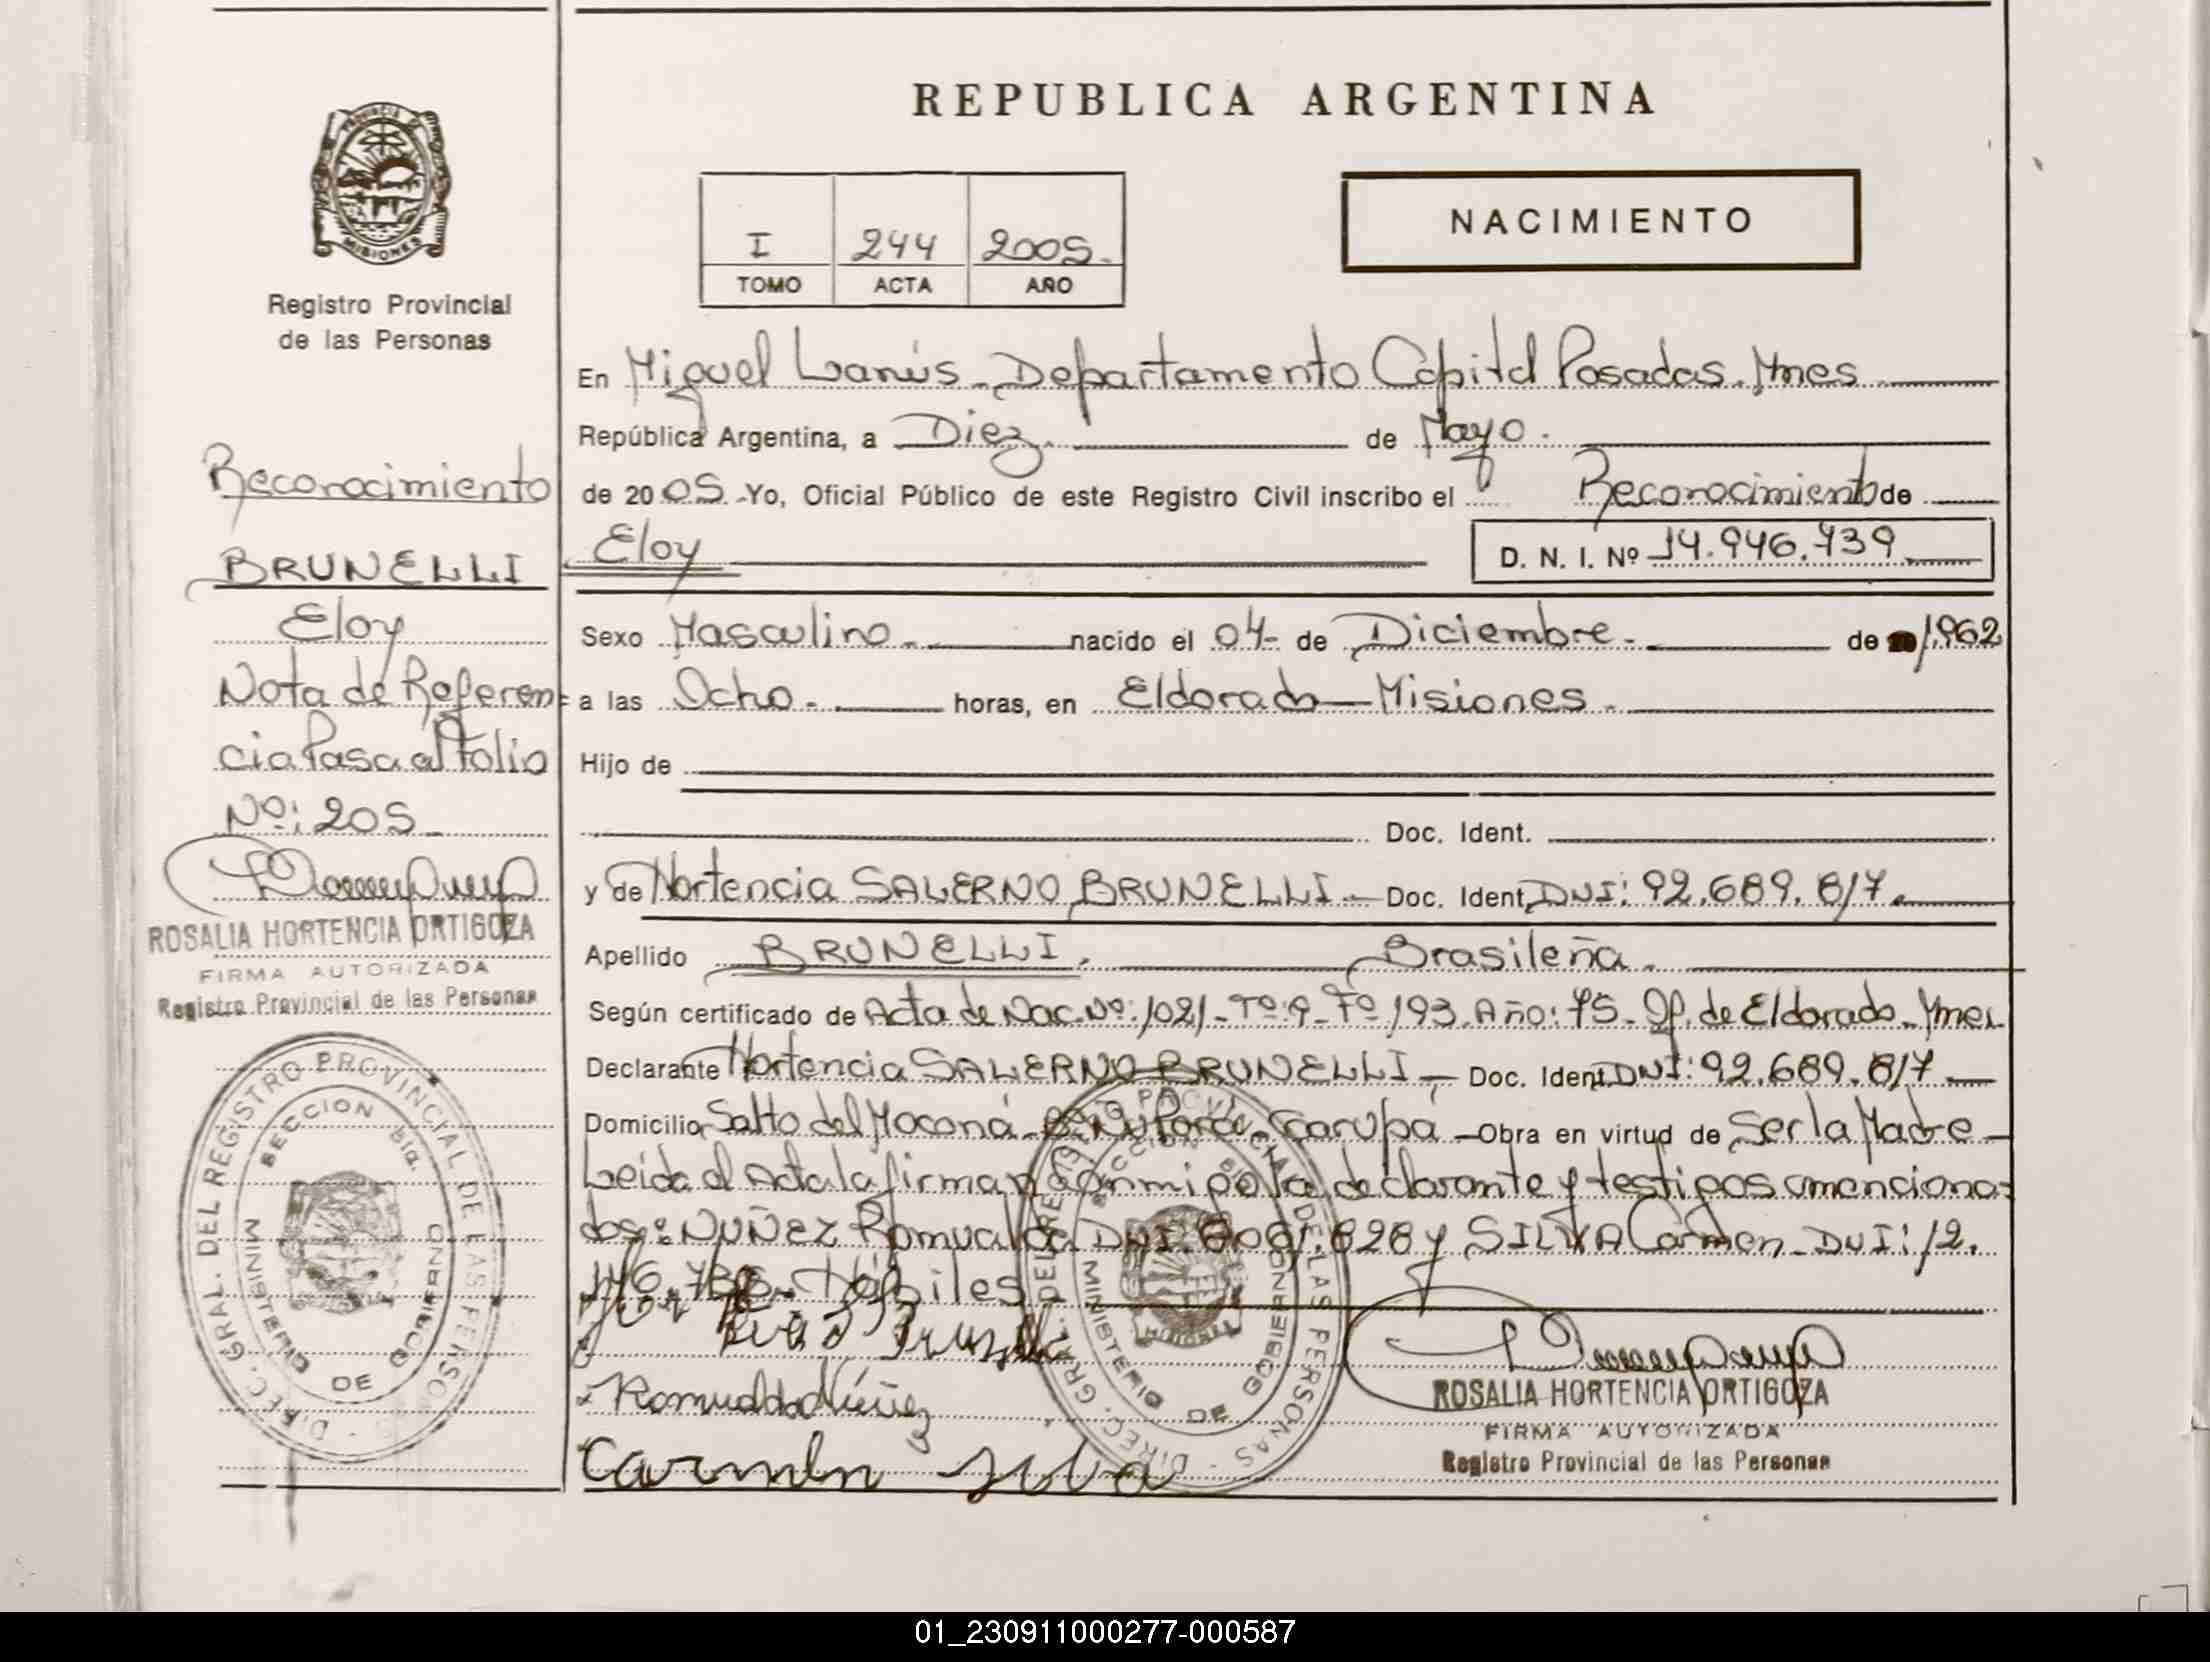 REPUBLICA ARGENTINA
PROVINCIA DE MISIONES
Registro Provincial
de las Personas
I 244 2005.
TOMO ACTA AÑO
NACIMIENTO
En Miguel Lanús - Departamento Capital Posadas. Mnes
República Argentina, a Diez. de Mayo.
de 2005. - Yo, Oficial Público de este Registro Civil inscribo el Reconocimiento de
Eloy D. N. I. Nº 14.946.739
Sexo Masculino. nacido el 04- de Diciembre. de 1.962
a las Ocho. horas, en Eldorado - Misiones.
Hijo de
Doc. Ident.
y de Hortencia SALERNO BRUNELLI - Doc. Ident. DNI: 92.689.817.
Apellido BRUNELLI. Brasileña.
Según certificado de Acta de Nac. Nº: 1021 - Tº: 9 - Fº 193. Año: 75 - Of. de Eldorado. Mnes.
Declarante Hortencia SALERNO BRUNELLI - Doc. Ident. DNI: 92.689.817
Domicilio Salto del Moconá - Bº Ñu Porá - Garupá - Obra en virtud de Ser la Madre
Leída el Acta la firman conmigo la declarante y testigos a menciona-
dos: NUÑEZ Romualdo DNI. 626 y SILVA Carmen - DNI: 12.
176.788 - Hábiles
Romualdo Núñez
Carmen Silva
ROSALIA HORTENCIA ORTIGOZA
FIRMA AUTORIZADA
Registro Provincial de las Personas
DIREC. GRAL. DEL REGISTRO PROVINCIAL DE LAS PERSONAS
MINISTERIO DE GOBIERNO
Reconocimiento
BRUNELLI
Eloy
Nota de Referen=
cia Pasa al Folio
Nº: 205
ROSALIA HORTENCIA ORTIGOZA
FIRMA AUTORIZADA
Registro Provincial de las Personas
DIREC. GRAL. DEL REGISTRO PROVINCIAL DE LAS PERSONAS
SECCION
MINISTERIO DE GOBIERNO
01_230911000277-000587